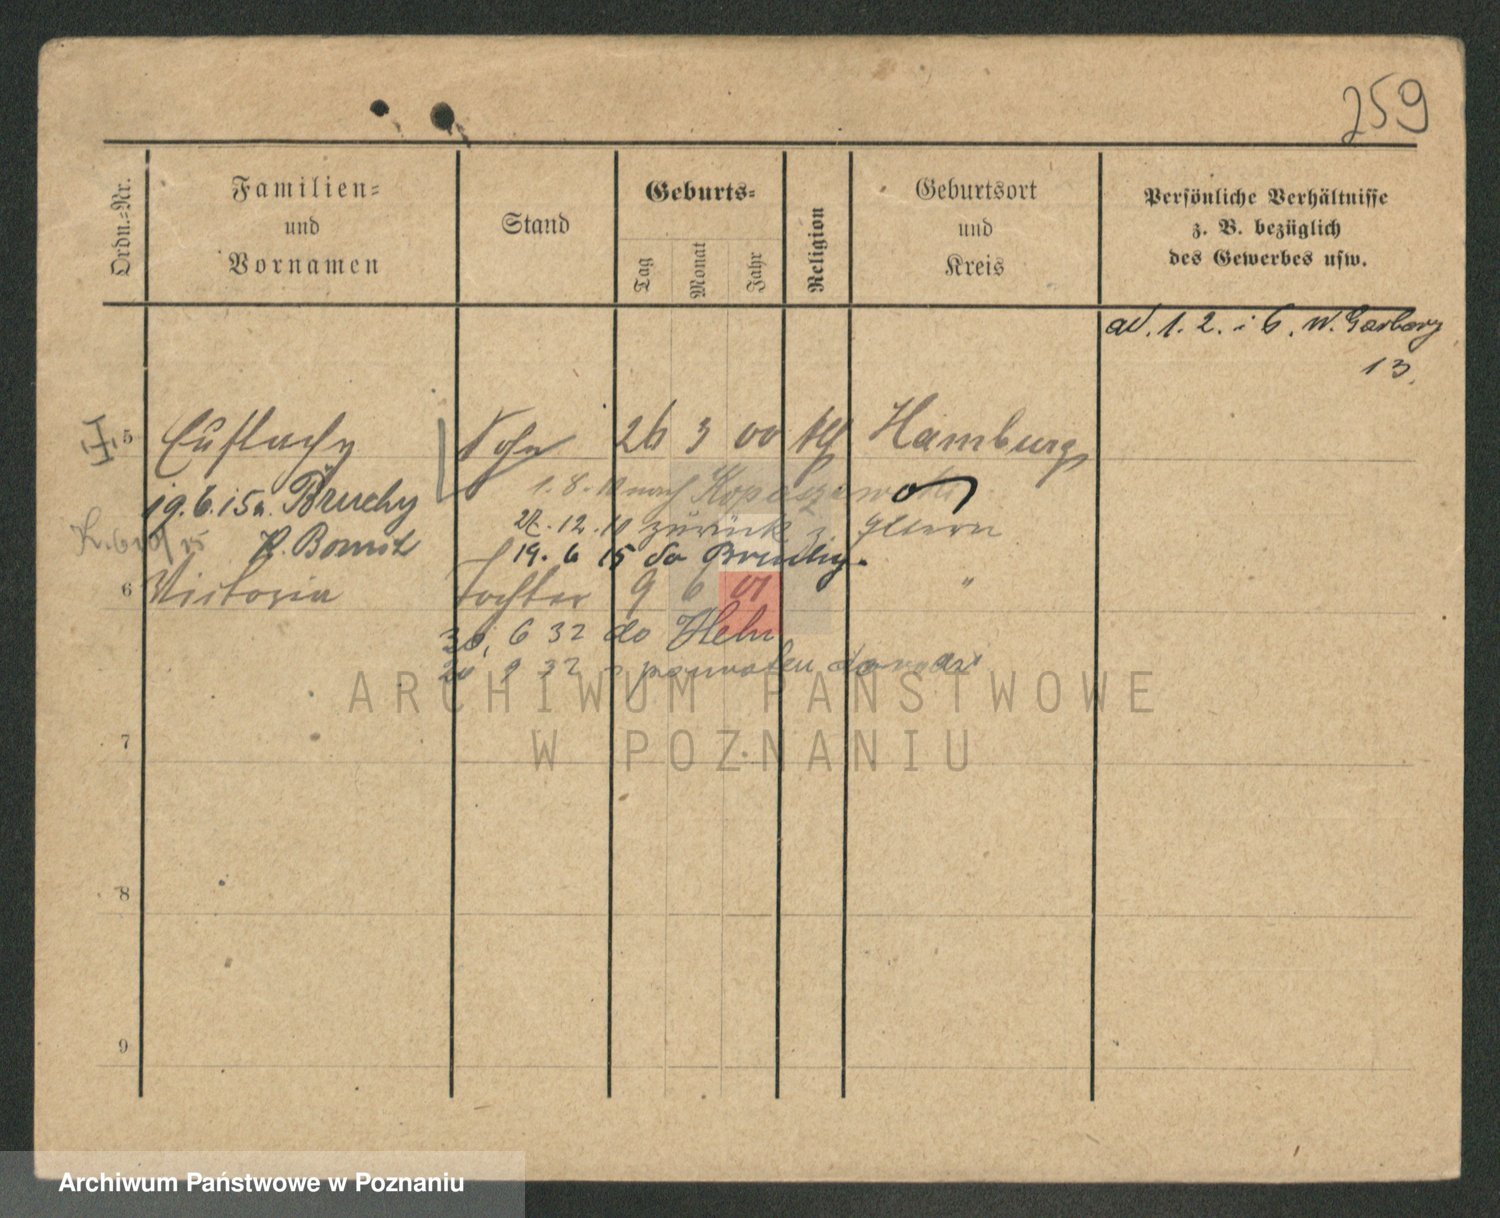 259
Ordn.-Nr.
Familien-
und
Vornamen
Stand
Geburts-
Tag
Monat
Jahr
Religion
Geburtsort
und
Kreis
Persönliche Verhältnisse
z. B. bezüglich
des Gewerbes usw.
ad. 1. 2. i 6. W. Garbary
13.
5 Eustachy Sohn 26 3 00 Hamburg
1.8. nach
19.6.15 n. Bruchy
27.12.10 zurück z. Eltern
K. Bomst
19. 6 15 do
6 Victoria Tochter 9 6 01 "
30. 6 32 do Helu
20 9 32 z powrotem
ARCHIWUM PAŃSTWOWE
W POZNANIU
7
8
9
Archiwum Państwowe w Poznaniu